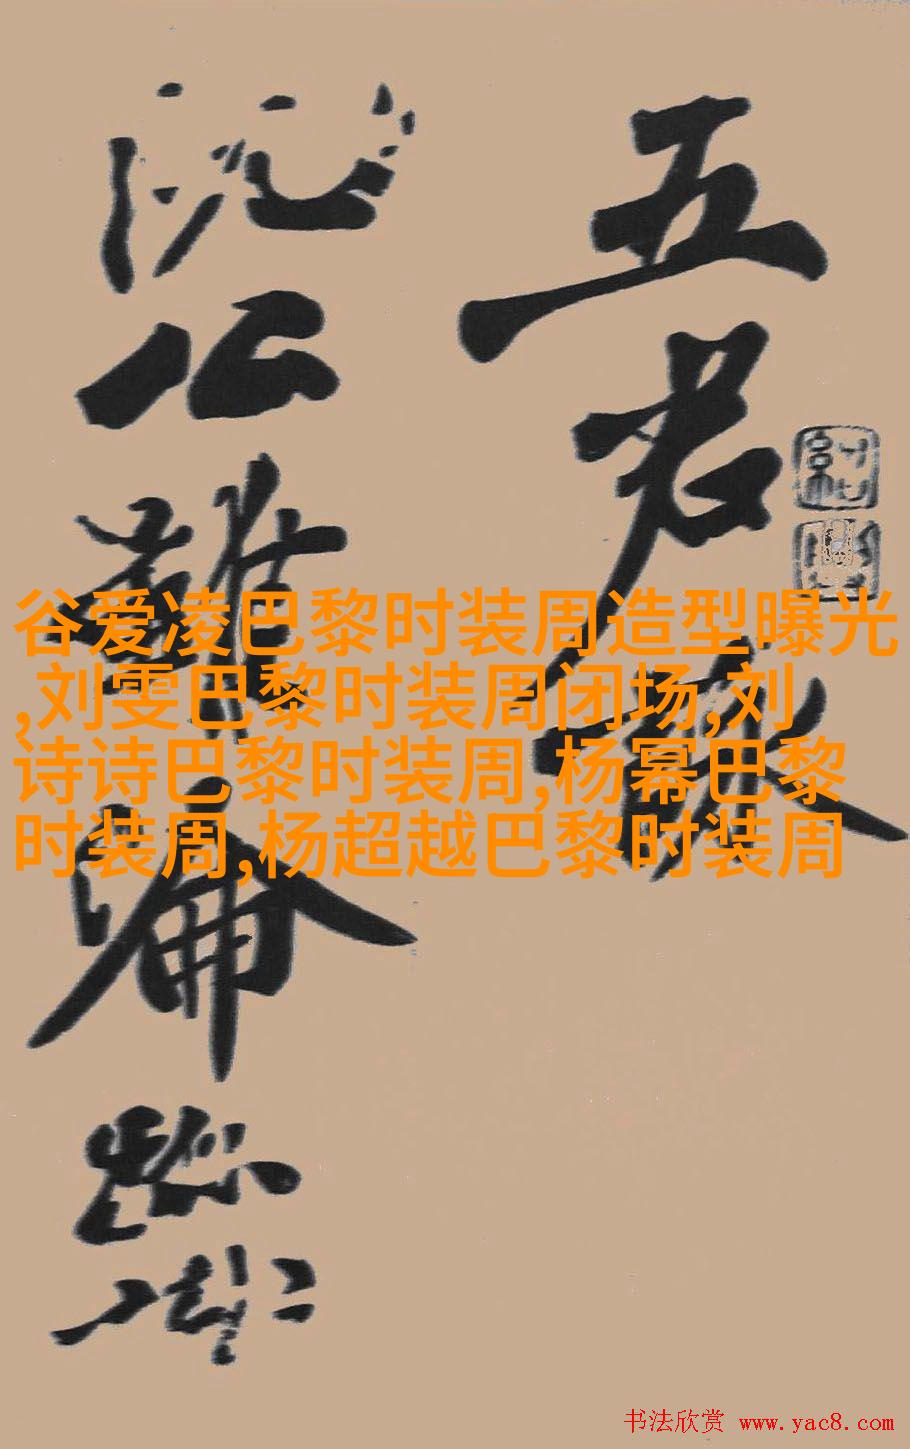 五君詠
阮公雖淪跡識
谷爱凌巴黎时装周造型曝光
,刘雯巴黎时装周闭场,刘
诗诗巴黎时装周,杨幂巴黎
时装周,杨超越巴黎时装周
书法欣赏 www.yac8.com